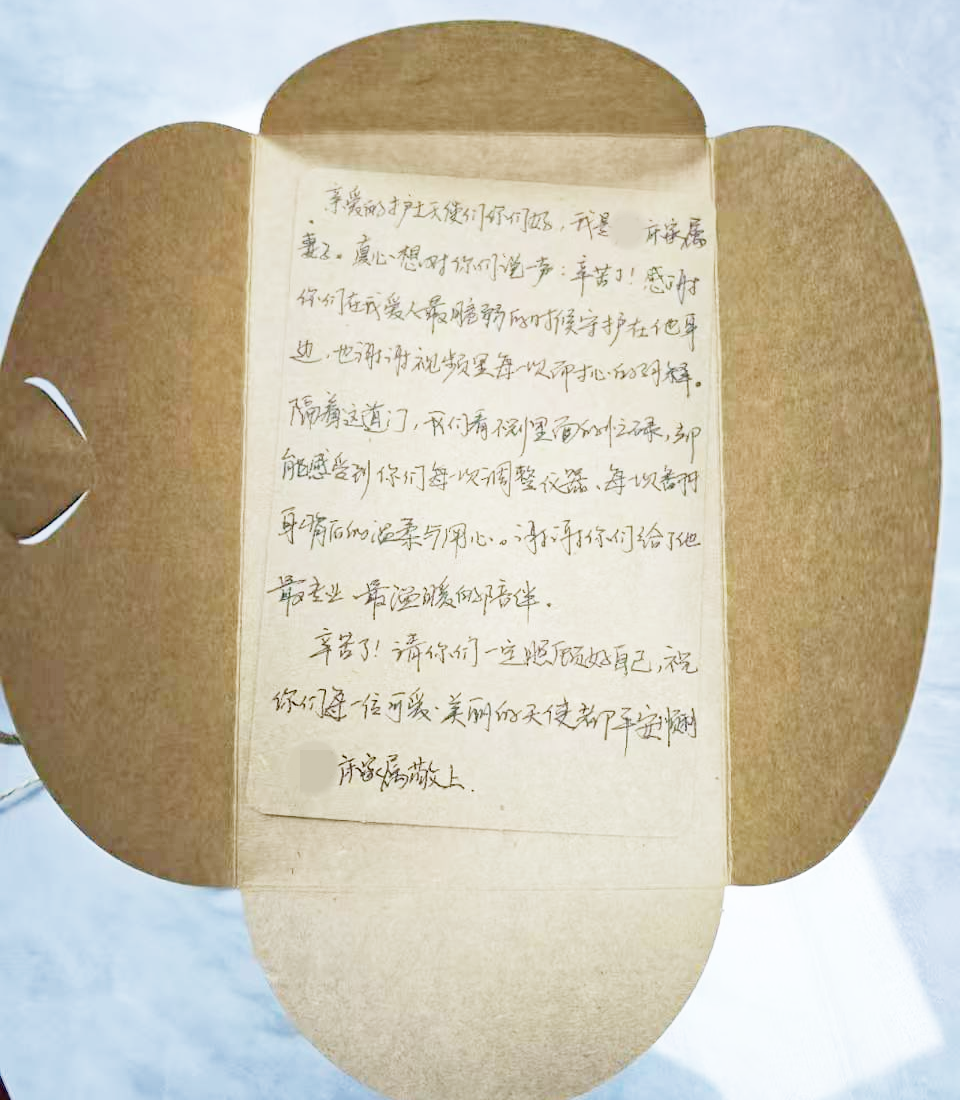 亲爱的护士天使们你们好，我是 床家属
妻子。真心想对你们说一声：辛苦了！感谢
你们在我爱人最脆弱的时候守护在他身
边，也谢谢视频里每一次耐心的讲解。
隔着这道门，我们看不到里面的忙碌，却
能感受到你们每一次调整仪器、每一次翻
身背后的温柔与用心。谢谢你们给了他
最专业、最温暖的陪伴。
辛苦了！请你们一定照顾好自己，祝
你们每一位可爱、美丽的天使都平安顺利
床家属敬上.